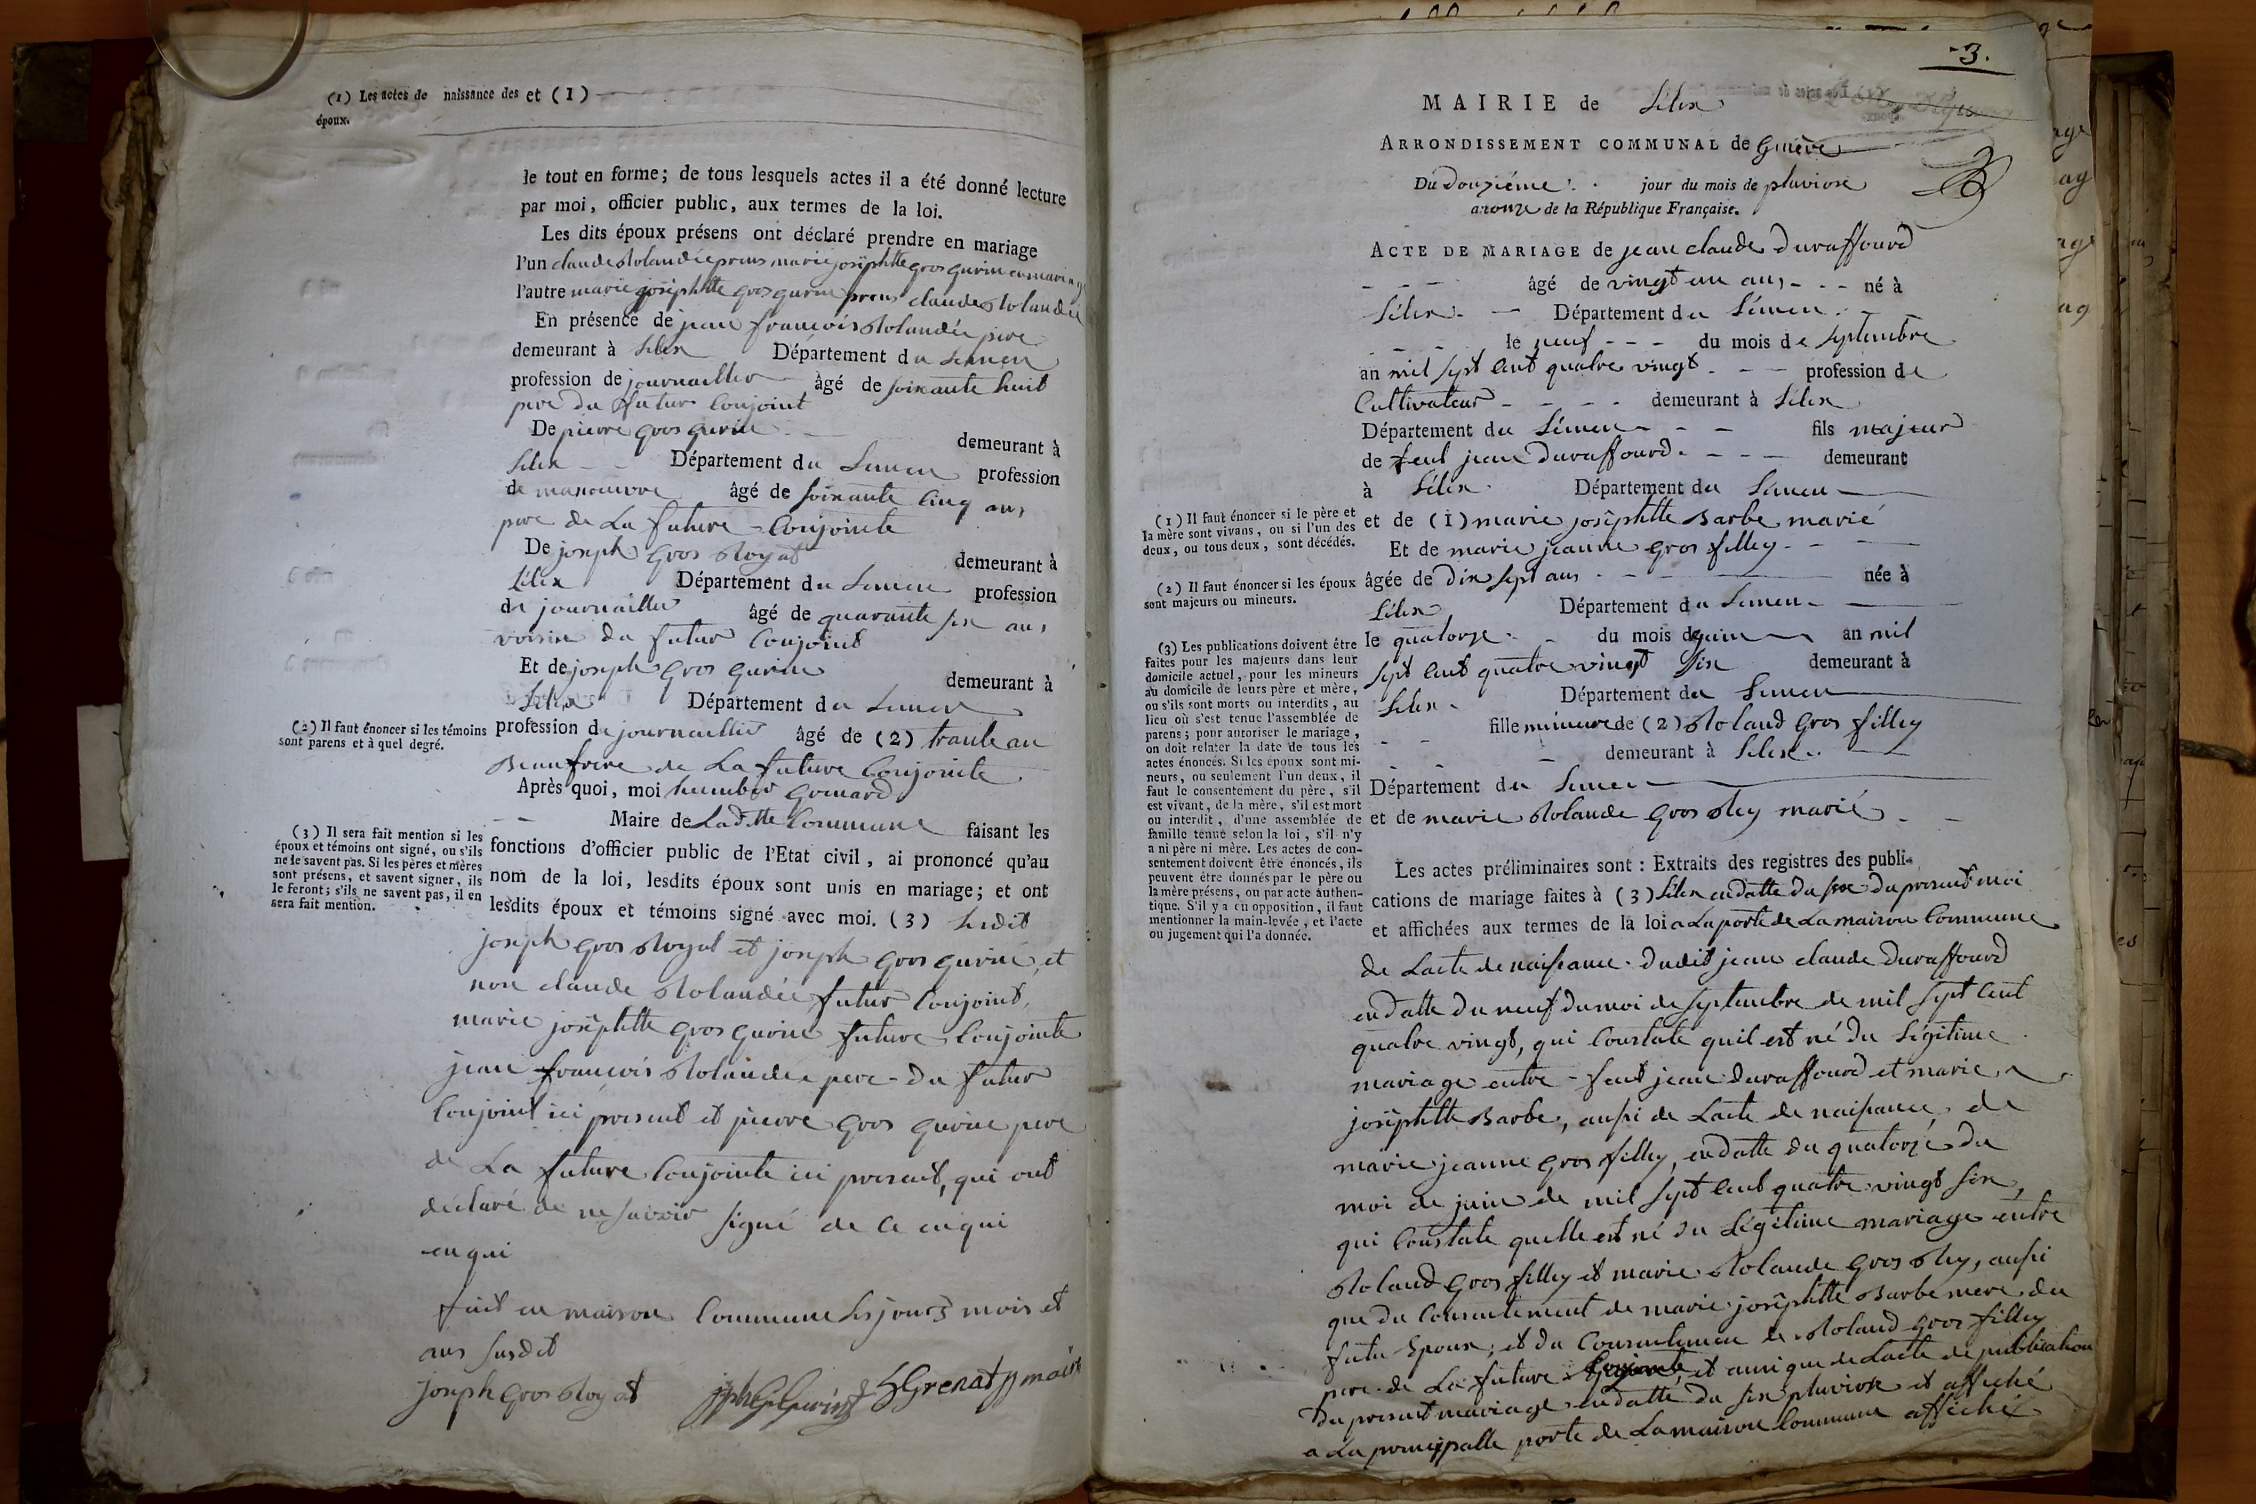 (1) Les actes de naissance des
époux.
et (1)
le tout en forme; de tous lesquels actes il a été donné lecture
par moi, officier public, aux termes de la loi.
Les dits époux présens ont déclaré prendre en mariage
l'un claude Rolandée prens marie josephtte gros gurin en mariage
l'autre marie josephtte gros gurin prens claude Rolandée
En présence de jean francois Rolandée pere
demeurant à Lelex Département du Leman
profession de journallier âgé de soixante huit
pere du futur Conjoint
De pierre gros gurin demeurant à
Lelex Département du Leman profession
de manouvre âgé de soixante cinq ans
pere de La future Conjointe
De joseph gros Royat demeurant à
Lelex Département du Leman profession
de journallier âgé de quarante six ans
voisin du futur Conjoint
Et de joseph gros gurin demeurant à
Lelex Département du Leman
(2) Il faut énoncer si les témoins
sont parens et à quel degré.
profession de journallier âgé de (2) trante an
Beaufrere de La future Conjointe
Après quoi, moi humber grenard
Maire de Ladtte Commune faisant les
(3) Il sera fait mention si les
époux et témoins ont signé, ou s'ils
ne le savent pas. Si les pères et mères
sont présens, et savent signer, ils
le feront; s'ils ne savent pas, il en
sera fait mention.
fonctions d'officier public de l'Etat civil, ai prononcé qu'au
nom de la loi, lesdits époux sont unis en mariage; et ont
lesdits époux et témoins signé avec moi. (3) lesdit
joseph gros Royat et joseph gros gurin, et
non claude Rolandée futur Conjoint,
marie josephtte gros gurin future Conjointe
jean francois Rolandée pere du futur
Conjoint ici present et pierre gros gurin pere
de La future Conjointe ici present, qui ont
déclaré de ne savoir signé de ce enqui
enqui
fait en maison Commune les jours mois et
ans susdit
joseph gros Royat
3.
MAIRIE de Lelex
ARRONDISSEMENT COMMUNAL de Genève
Du Douziéme jour du mois de pluviose
an onze de la République Française.
ACTE DE MARIAGE de jean claude Duraffourd
âgé de vingt un ans né à
Lélex Département du Léman
le neuf du mois de septembre
an mil sept cent quatre vingt profession de
Cultivateur demeurant à Lélex
Département du Léman fils majeur
de feut jean Duraffourd demeurant
à Lélex Département du Léman
(1) Il faut énoncer si le père et
la mère sont vivans, ou si l'un des
deux, ou tous deux, sont décédés.
et de (1) marie josephtte Barbe marié
Et de marie jeanne gros filley
(2) Il faut énoncer si les époux
sont majeurs ou mineurs.
âgée de dix sept ans née à
Lélex Département du Leman
le quatorze du mois de juin an mil
sept cent quatre vingt six demeurant à
Lelex Département du Leman
fille mineure de (2) Roland gros filley
demeurant à Lelex
Département du Leman
et de marie Rolande gros Rey marié
(3) Les publications doivent être
faites pour les majeurs dans leur
domicile actuel, pour les mineurs
au domicile de leurs père et mère,
ou s'ils sont morts ou interdits, au
lieu où s'est tenue l'assemblée de
parens; pour autoriser le mariage,
on doit relater la date de tous les
actes énoncés. Si les époux sont mi-
neurs, ou seulement l'un deux, il
faut le consentement du père, s'il
est vivant, de la mère, s'il est mort
ou interdit, d'une assemblée de
famille tenue selon la loi, s'il n'y
a ni père ni mère. Les actes de con-
sentement doivent être énoncés, ils
peuvent être donnés par le père ou
la mère présens, ou par acte authen-
tique. S'il y a eu opposition, il faut
mentionner la main-levée, et l'acte
ou jugement qui l'a donnée.
Les actes préliminaires sont : Extraits des registres des publi-
cations de mariage faites à (3) Lélex endatte du six du present moi
et affichées aux termes de la loi a La porte de La maison Commune
de Lacte de naissance dudit jean claude Duraffourd
endatte du neuf du moi de septembre de mil sept cent
quatre vingt, qui Constate quil est né du Légitime
mariage entre feut jean duraffourd et marie
josephtte Barbe, aussi de Lacte de naissance, de
marie jeanne gros filley, endatte du quatorze du
moi de juin de mil sept cent quatre vingt six,
qui Constate quelle est né du Légitime mariage entre
Roland gros filley et marie Rolande gros Rey, aussi
que du Consentement de marie josephtte Barbe mere du
futu Epoux, et du Consentemen de Roland gros filley
pere de La future et aussi que de Lacte de publication
du present mariage endatte du six pluviose et affiché
a La principalle porte de Lamaison Commune affiché